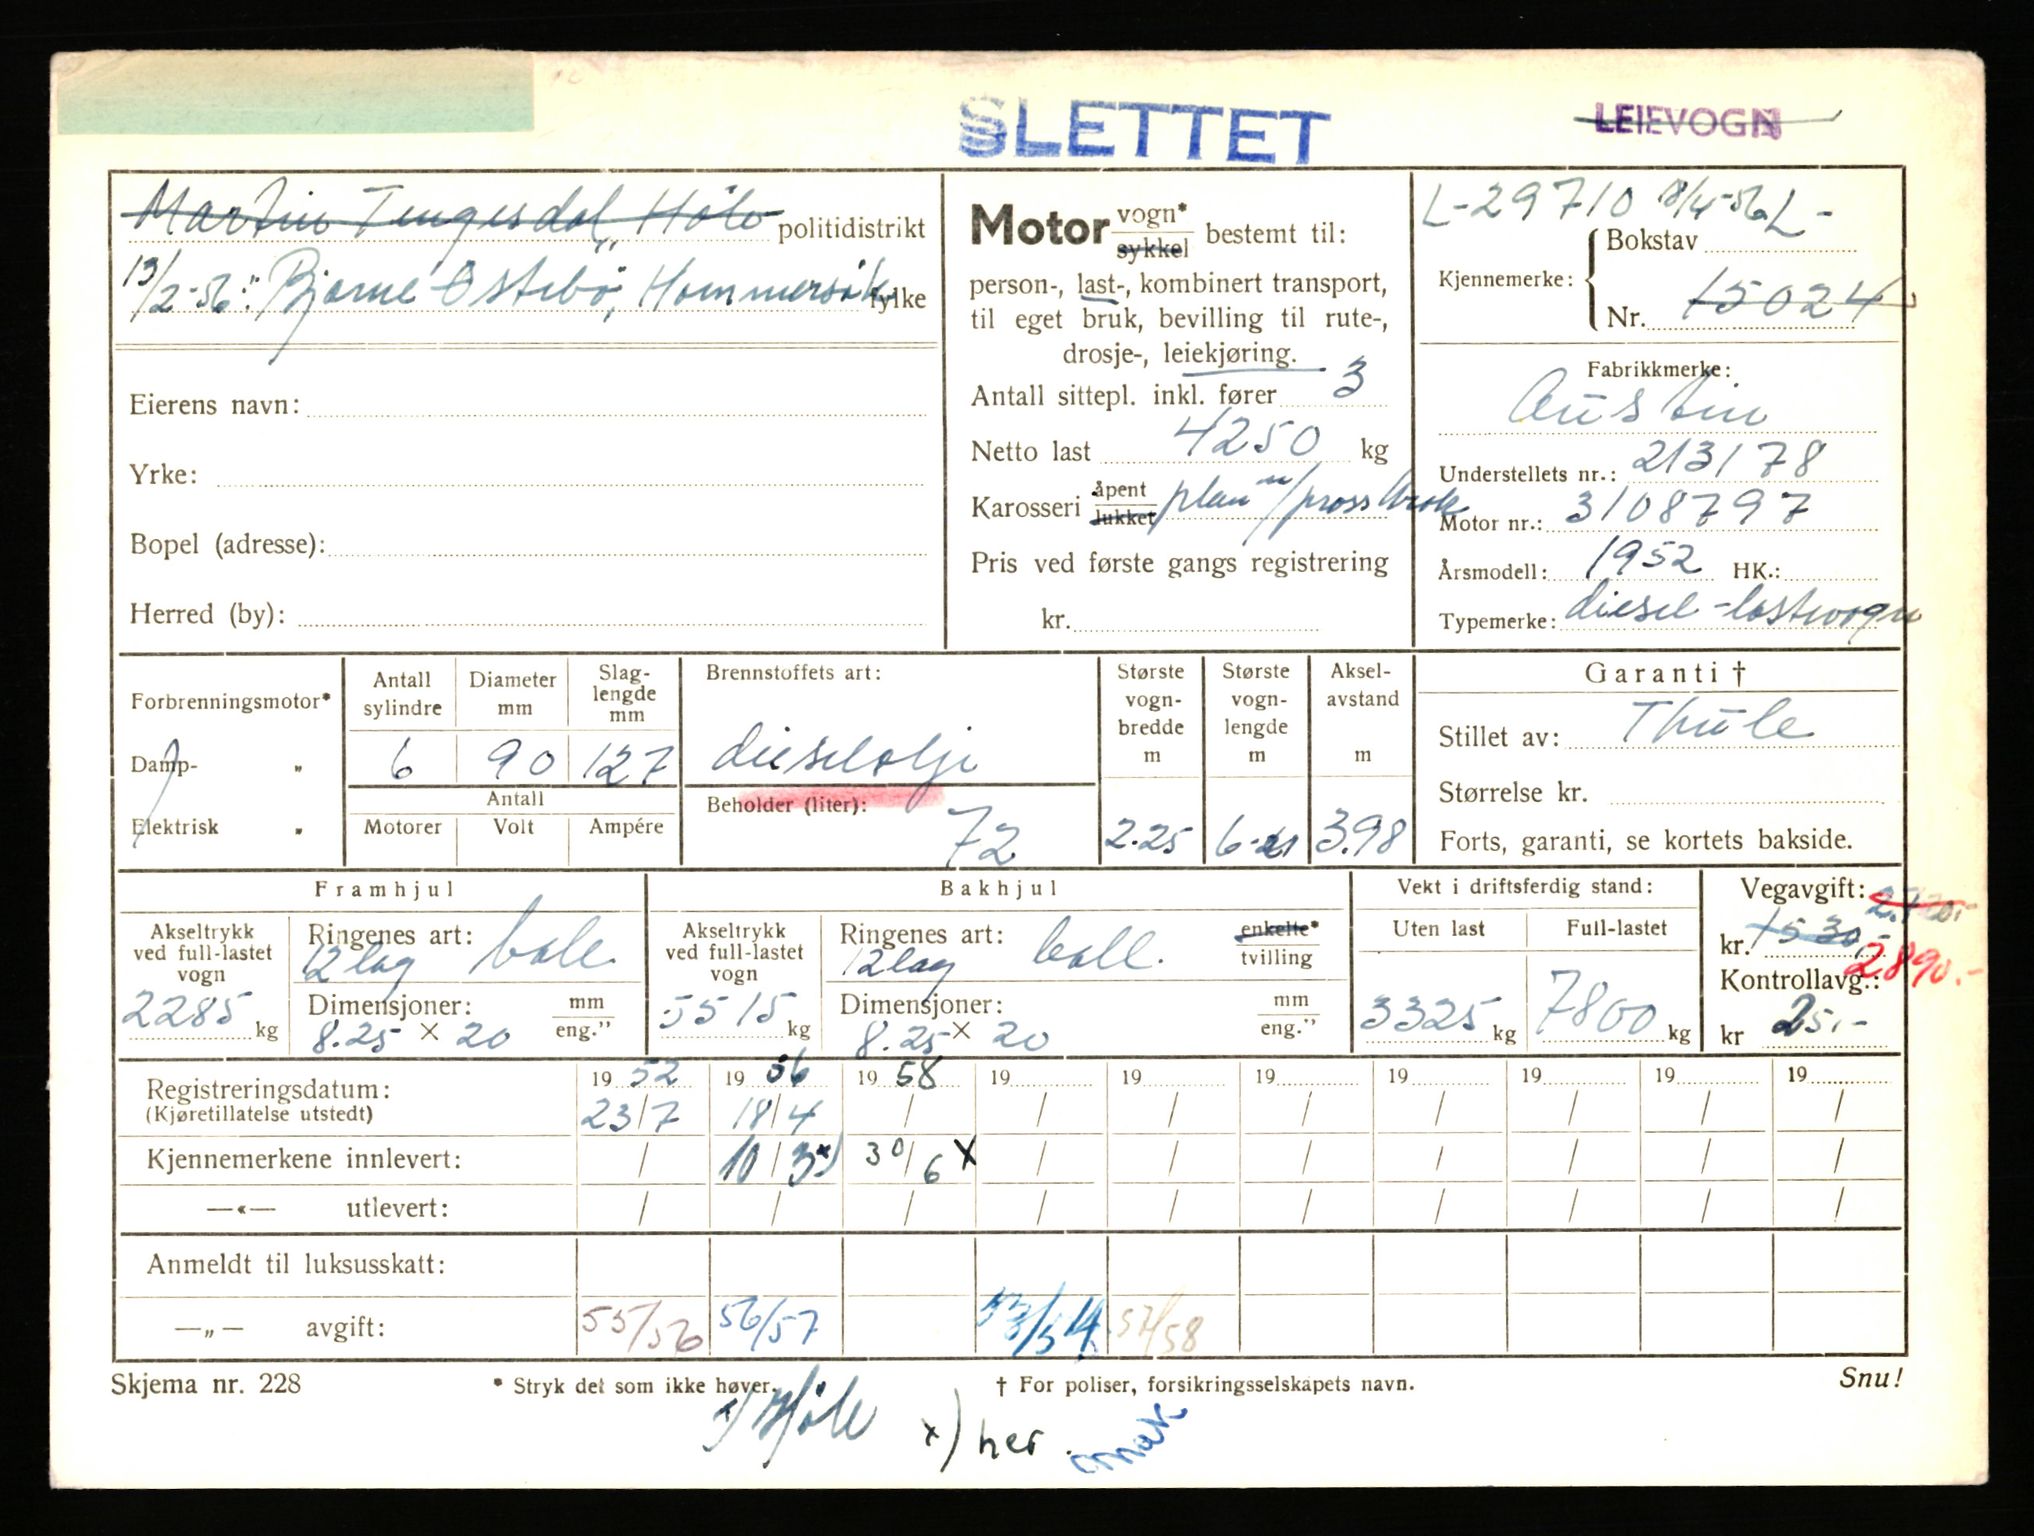 SLETTET
LEIEVOGN
Martin Tengesdal, Höle politidistrikt
13/2-56: Bjarne Østebö, Hommersåk fylke
Eierens navn:
Yrke:
Bopel (adresse):
Herred (by):
Motor vogn* sykkel bestemt til:
person-, last-, kombinert transport,
til eget bruk, bevilling til rute-,
drosje-, leiekjøring.
Antall sittepl. inkl. fører 3
Netto last 4250 kg
Karosseri åpent lukket plan
Pris ved første gangs registrering
kr.
L-29710 18/4-56 L-
Kjennemerke: Bokstav
Nr. 15024
Fabrikkmerke:
Austin
Understellets nr.: 213178
Motor nr.: 3108797
Årsmodell: 1952 HK.:
Typemerke: diesel-lastevogn
Forbrenningsmotor*
Damp- "
Elektrisk "
Antall sylindre Diameter mm Slaglengde mm
6 90 127
Antall
Motorer Volt Ampére
Brennstoffets art:
dieselolje
Beholder (liter):
72
Største vognbredde m
2.25
Største vognlengde m
6-21
Akselavstand m
3.98
Garanti †
Stillet av: Thule
Størrelse kr.
Forts, garanti, se kortets bakside.
Framhjul
Akseltrykk ved full-lastet vogn
2285 kg
Ringenes art:
12 lag ball.
Dimensjoner: mm
8.25 x 20 eng."
Bakhjul
Akseltrykk ved full-lastet vogn
5515 kg
Ringenes art: enkelte*
12 lag ball. tvilling
Dimensjoner: mm
8.25 x 20 eng."
Vekt i driftsferdig stand:
Uten last Full-lastet
3325 kg 7800 kg
Vegavgift:
kr. 1530,-
2890.-
Kontrollavg.:
kr 25.-
Registreringsdatum: 1952 1956 1958 19 19 19 19 19 19 19
(Kjøretillatelse utstedt) 23/7 18/4 / / / / / / / /
Kjennemerkene innlevert: / 10/3 x) 30/6 x / / / / / / /
—«— utlevert: / / / / / / / / / /
Anmeldt til luksusskatt:
—„— avgift: 55/56 56/57 53/54 57/58
Skjema nr. 228 * Stryk det som ikke høver. † For poliser, forsikringsselskapets navn. Snu!
x) Höle x) her.